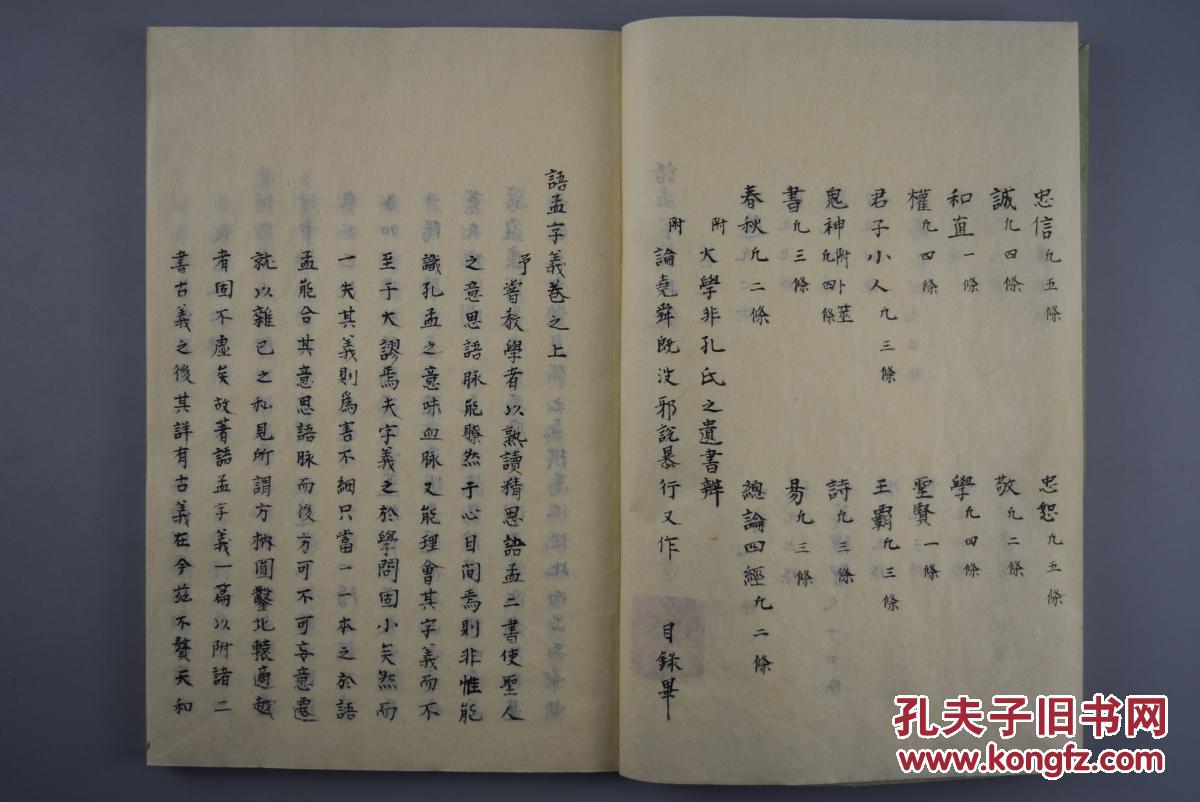 忠信凢五條　忠恕凢五條
誠凢四條　敬凢二條
和直一條　學凢四條
權凢四條　聖賢一條
君子小人凢三條　王霸凢三條
鬼神凢四條附卜筮　詩凢三條
書凢三條　易凢三條
春秋凢二條　總論四經凢二條
附大學非孔氏之遺書辨
附論堯舜既沒邪說暴行又作　目錄畢
語孟字義卷之上
予嘗教學者以熟讀精思語孟二書使聖人
之意思語脉能瞭然于心目間焉則非惟能
識孔孟之意味血脉又能理會其字義而不
至于大謬焉夫字義之於學問固小矣然而
一失其義則爲害不細只當一一本之於語
孟能合其意思語脉而後方可不可妄意遷
就以雜己之私見所謂方枘圓鑿北轅適越
者固不虛矣故著語孟字義一篇以附諸二
書古義之後其詳有古義在今茲不贅天和
孔夫子旧书网
www.kongfz.com